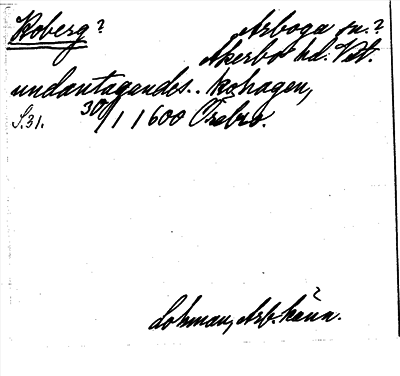 Koberg? Arboga sn.?
Åkerbo hd. Vstl.
undantagandes.. kohagen,
S.31. 30/1 1600 Örebro.
Lohman, Arb. känn.?